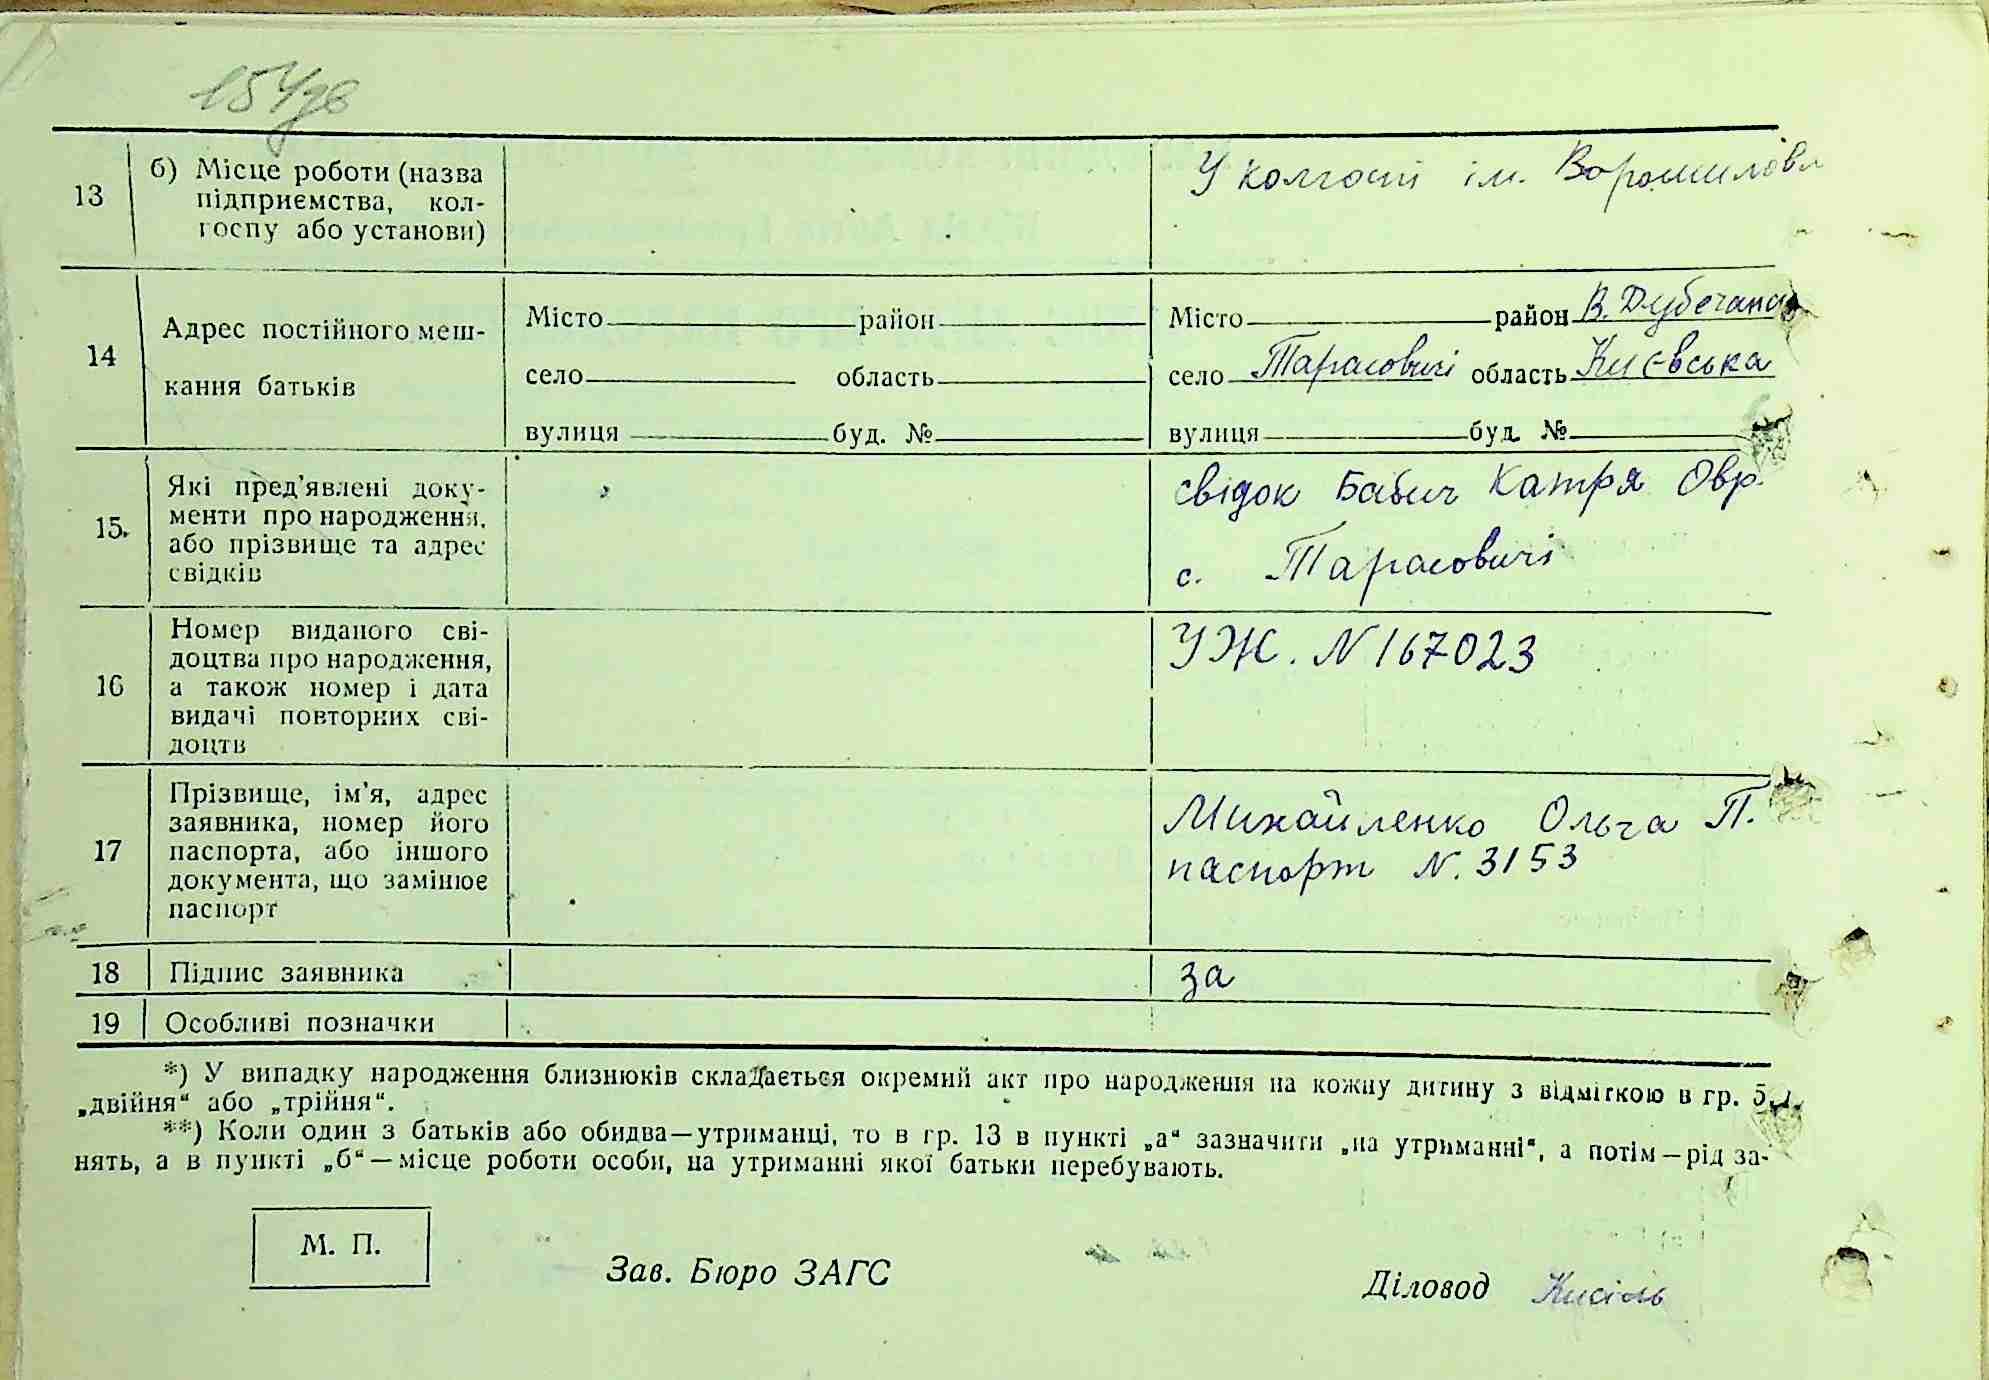 154зв
13 б) Місце роботи (назва
підприємства, кол-
госпу або установи)
У колгоспі ім. Ворошилова
14 Адрес постійного меш-
кання батьків
Місто район
село область
вулиця буд. №
Місто район В. Дубечансь
село Тарасовичі область Києвська
вулиця буд. №
15. Які пред'явлені доку-
менти про народження,
або прізвище та адрес
свідків
свідок Бабич Катря Овр.
с. Тарасовичі
16 Номер виданого сві-
доцтва про народження,
а також номер і дата
видачі повторних сві-
доцтв
УЖ. N 167023
17 Прізвище, ім'я, адрес
заявника, номер його
паспорта, або іншого
документа, що замінює
паспорт
Михайленко Ольга П.
паспорт N. 3153
18 Підпис заявника за
19 Особливі позначки
*) У випадку народження близнюків складається окремий акт про народження на кожну дитину з відміткою в гр. 5
„двійня“ або „трійня“.
**) Коли один з батьків або обидва—утриманці, то в гр. 13 в пункті „а“ зазначити „на утриманні“, а потім—рід за-
нять, а в пункті „б“—місце роботи особи, на утриманні якої батьки перебувають.
М. П.
Зав. Бюро ЗАГС
Діловод Кисіль